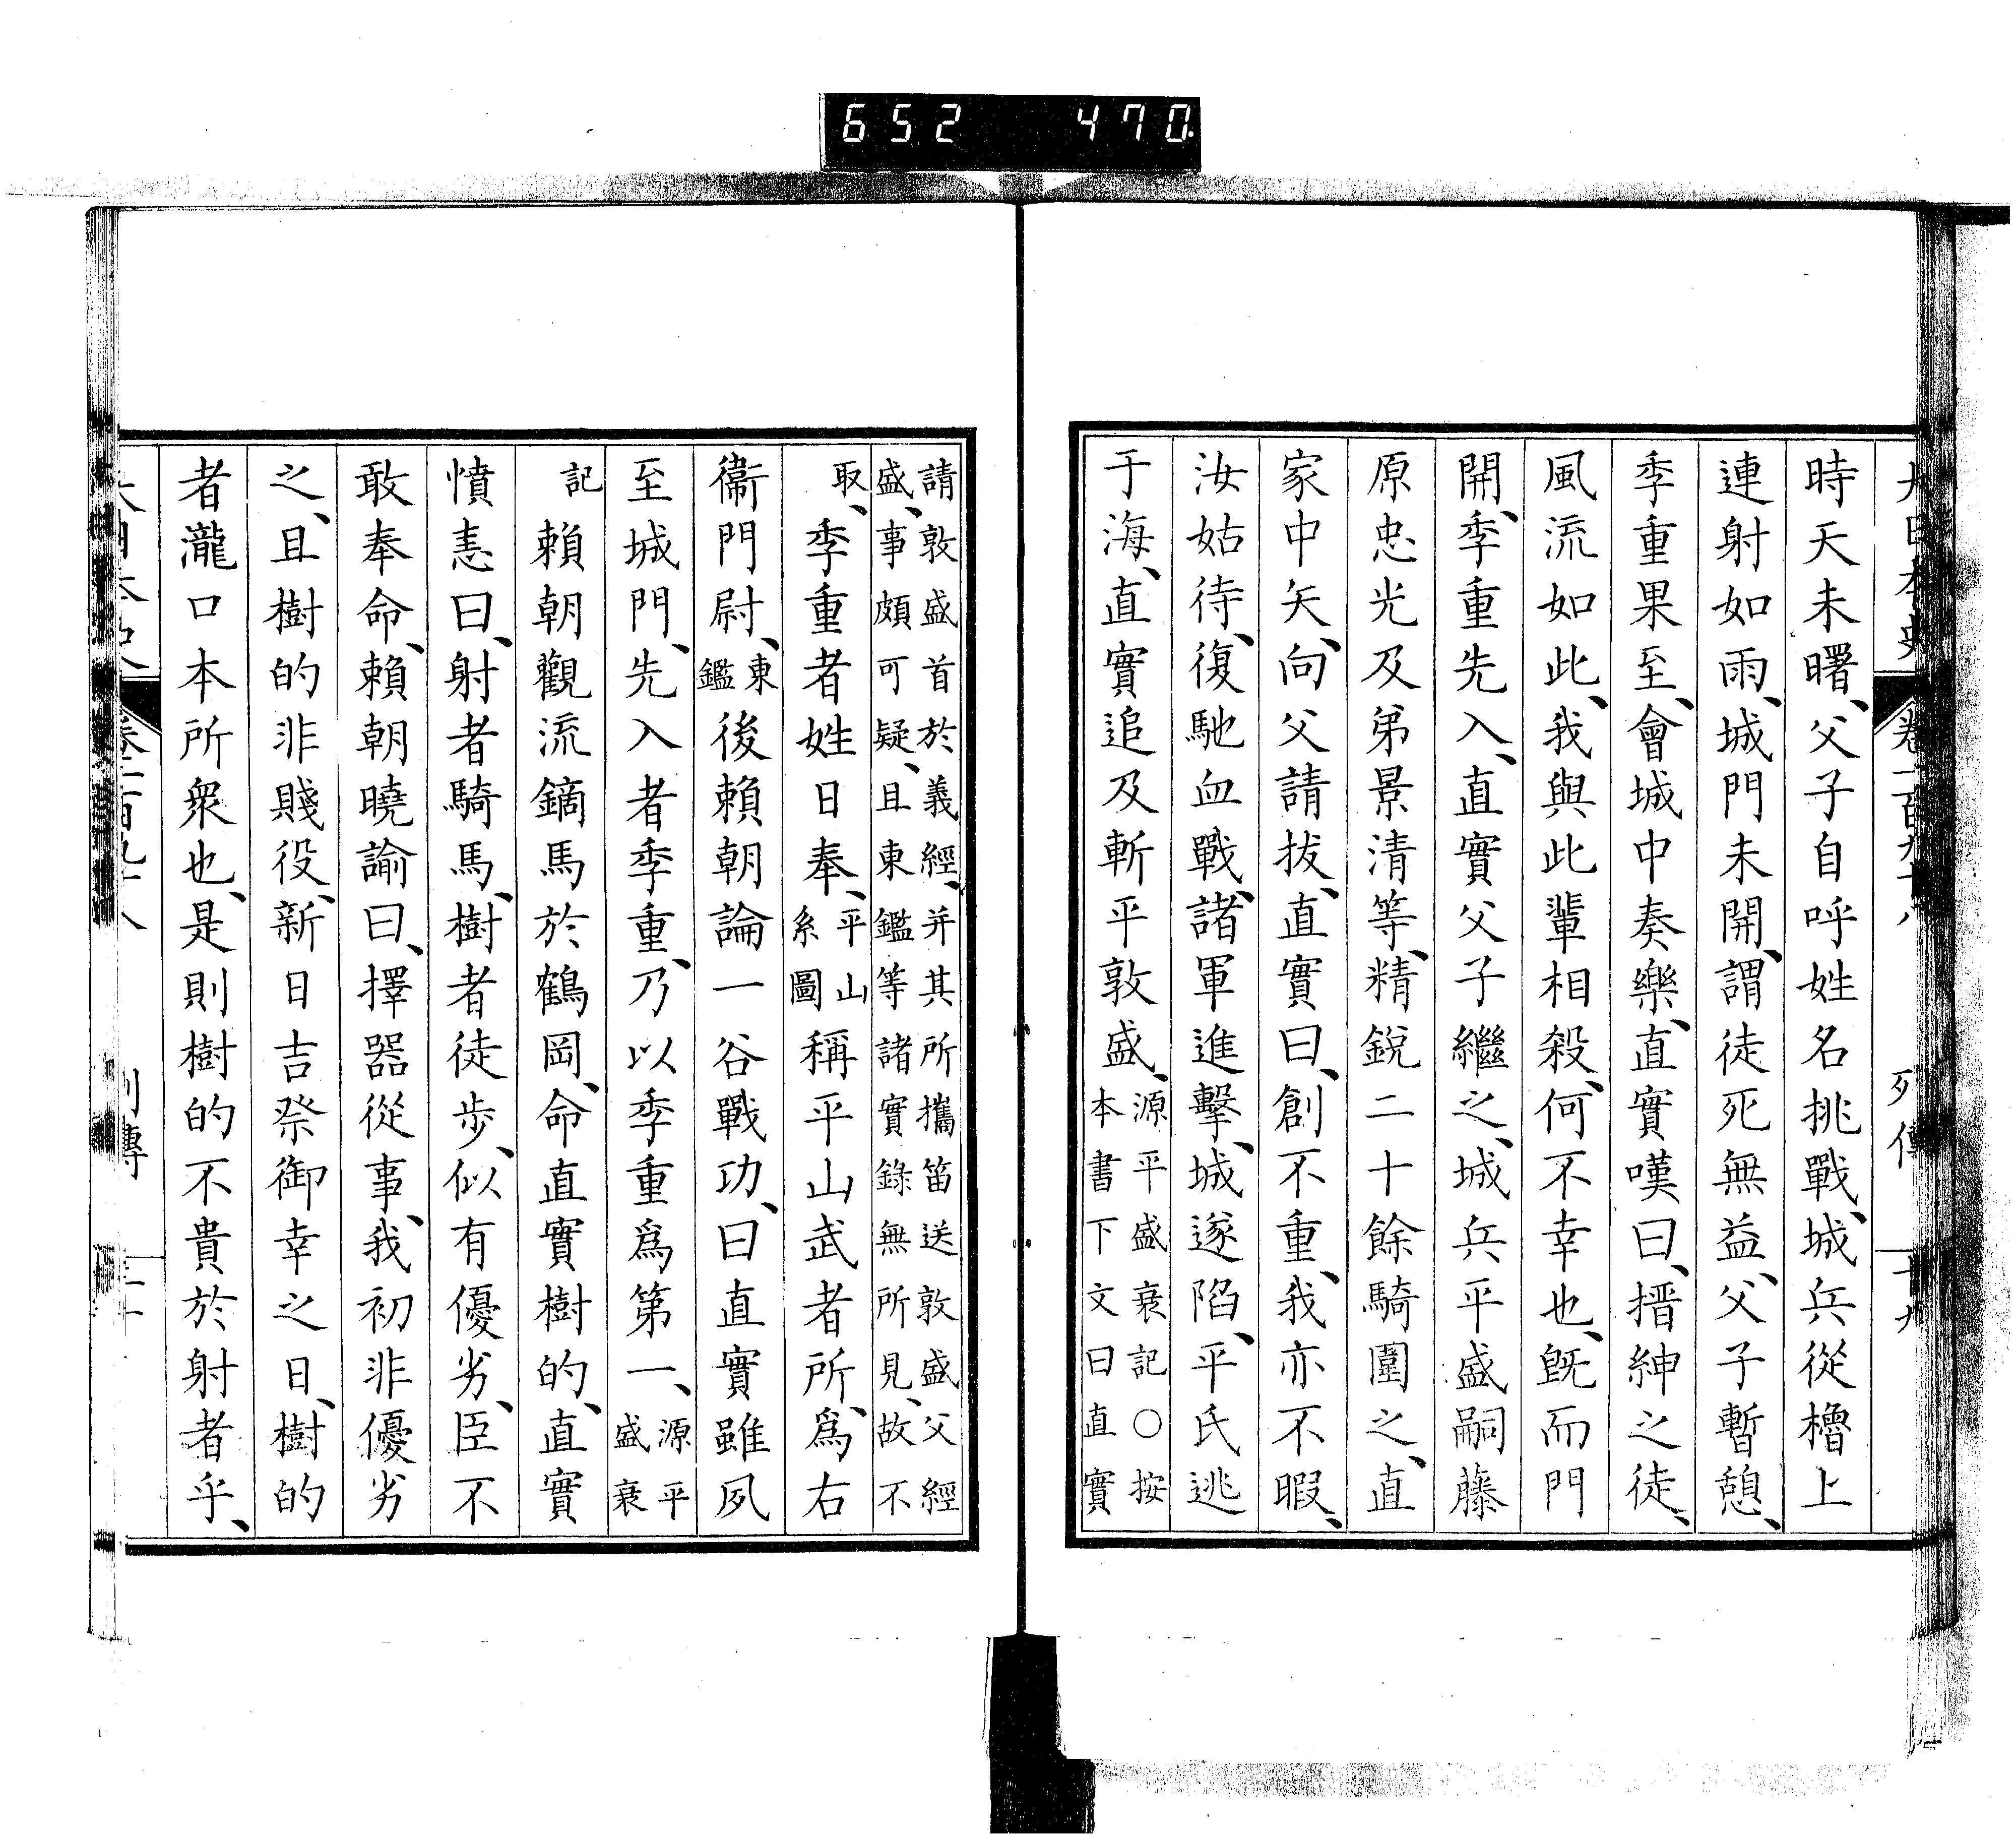 652 470
時天未曙、父子自呼姓名挑戰、城兵從櫓上
連射如雨、城門未開、謂徒死無益、父子暫憩、
季重果至、會城中奏樂、直實嘆曰、搢紳之徒、
風流如此、我與此輩相殺、何不幸也、既而門
開、季重先入、直實父子繼之、城兵平盛嗣藤
原忠光及弟景清等、精銳二十餘騎圍之、直
家中矢、向父請拔、直實曰、創不重、我亦不暇、
汝姑待、復馳血戰、諸軍進擊、城遂陷、平氏逃
于海、直實追及斬平敦盛、源平盛衰記○按本書下文曰直實
請敦盛首於義經、并其所攜笛送敦盛父經盛、事頗可疑、且東鑑等諸實錄無所見、故不
取、季重者姓日奉、平山系圖稱平山武者所、爲右
衞門尉、東鑑後賴朝論一谷戰功、曰直實雖夙
至城門、先入者季重、乃以季重爲第一、源平盛衰
記賴朝觀流鏑馬於鶴岡、命直實樹的、直實
憤恚曰、射者騎馬、樹者徒步、似有優劣、臣不
敢奉命、賴朝曉諭曰、擇器從事、我初非優劣
之、且樹的非賤役、新日吉祭御幸之日、樹的
者瀧口本所衆也、是則樹的不貴於射者乎、